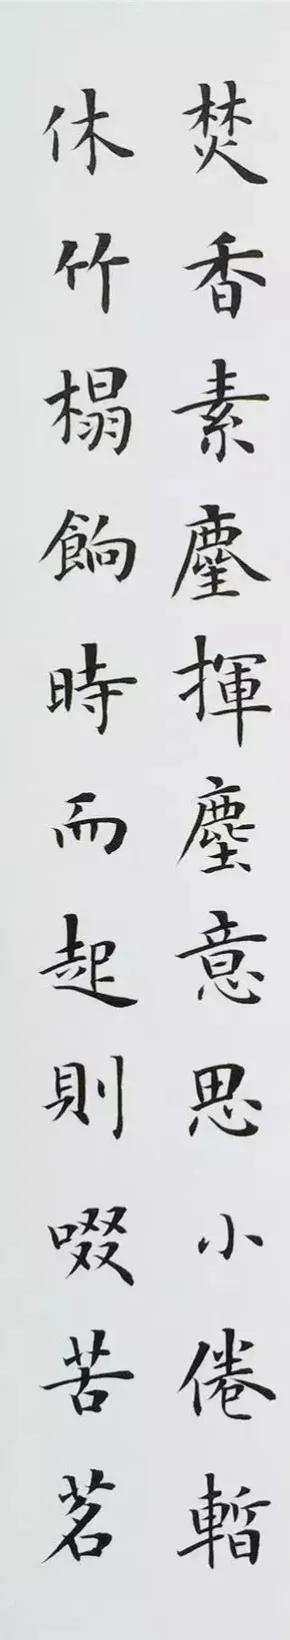 焚香素麈揮塵意思小倦暫
休竹榻餉時而起則啜苦茗